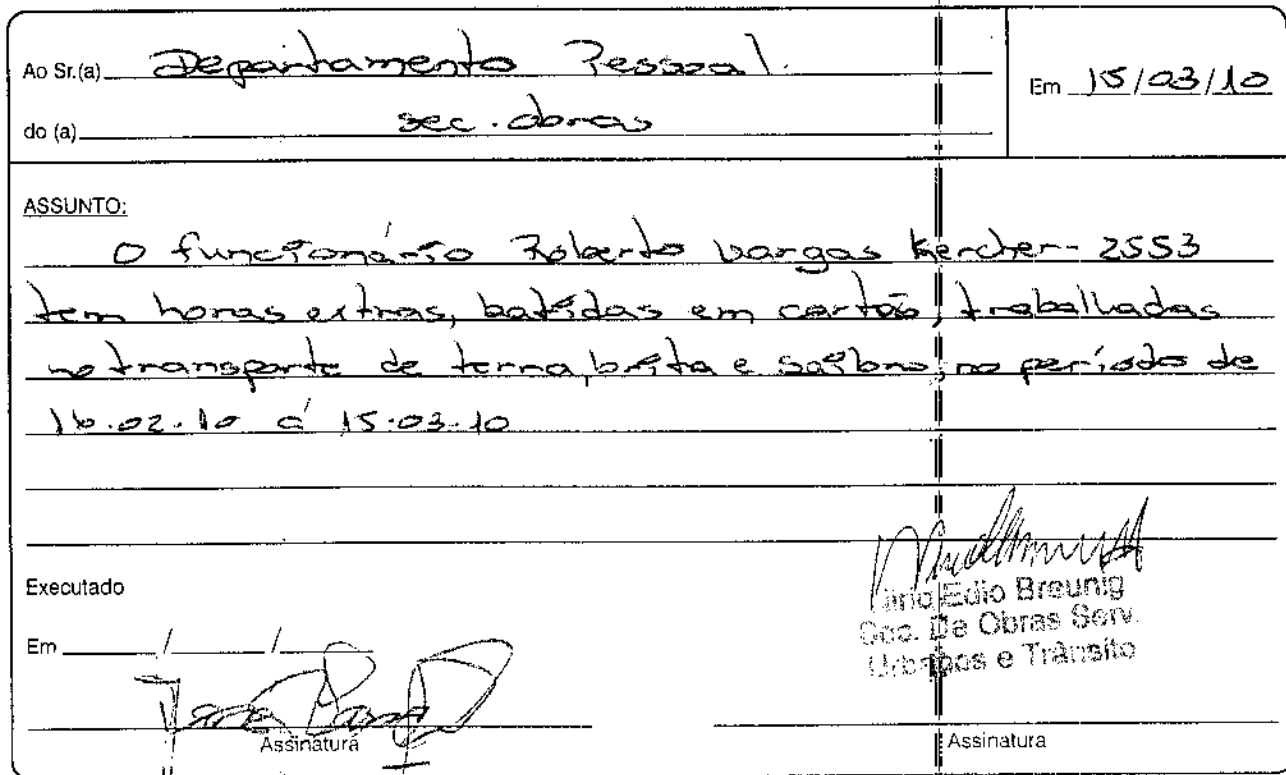 Ao Sr.(a) Departamento Pessoal.
Em 15/03/10
do (a) sec. obras
ASSUNTO:
O funcionário Roberto Vargas Kercher - 2553
tem horas extras, batidas em cartão, trabalhadas
no transporte de terra, brita e saibro, no período de
16.02.10 á 15.03.10
Executado
Em / /
Assinatura
Edio Breunig
Sec. De Obras Serv.
Urbanos e Trânsito
Assinatura